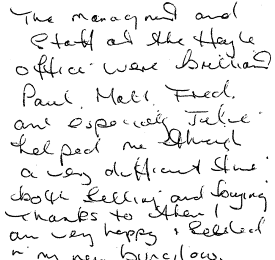 The managment and
Staff at the Hayle
office were brilliant
Paul, Matt, Fred,
and especially Julie
helped me through
a very difficult time
both selling and buying
Thanks to them I
am very happy & settled
in my new bungalow.